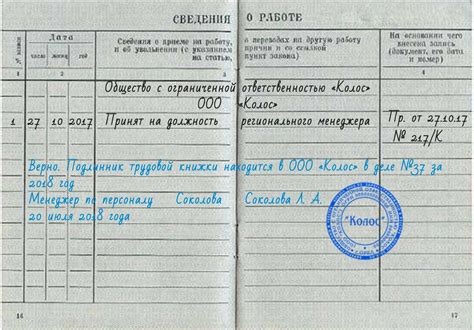 СВЕДЕНИЯ О РАБОТЕ
№ записи
Дата
число
месяц
год
Сведения о приеме на работу, о переводах на другую работу
и об увольнении (с указанием причин и со ссылкой
на статью, пункт закона)
На основании чего
внесена запись
(документ, его дата
и номер)
1 2 3 4
Общество с ограниченной ответственностью «Колос»
ООО «Колос»
1 27 10 2017 Принят на должность регионального менеджера Пр. от 27.10.17
№ 217/К
Верно. Подлинник трудовой книжки находится в ООО «Колос» в деле №37 за
2018 год
Менеджер по персоналу Соколова Соколова Л. А.
20 июля 2018 года
"Колос"
16 17